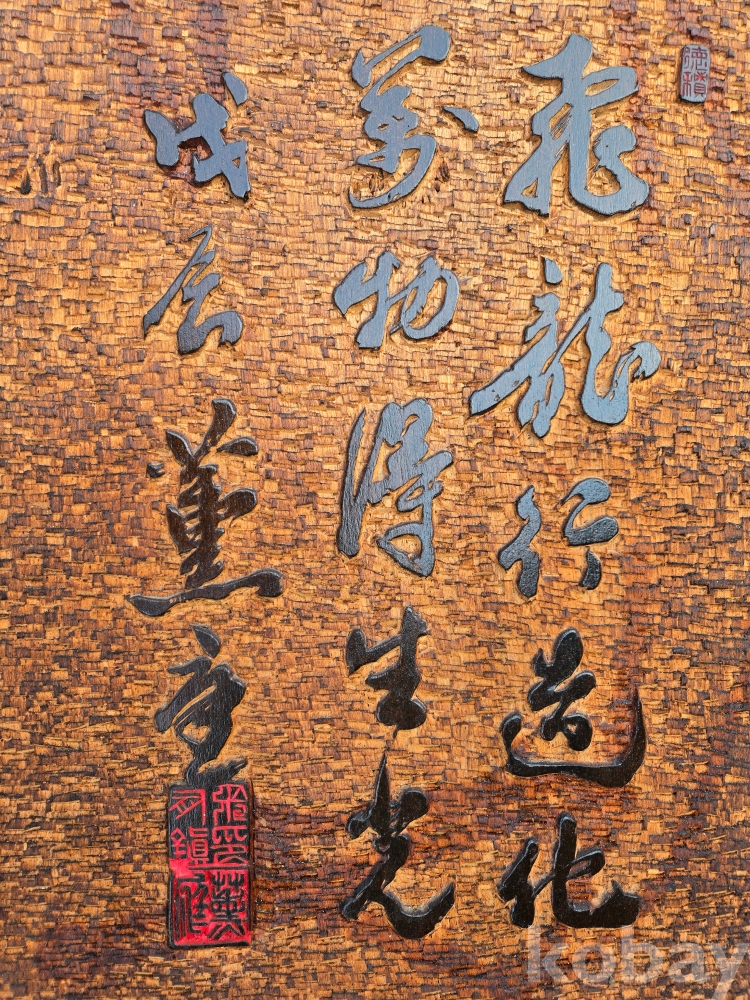 飛龍行造化
萬物得生光
戊辰
kobay